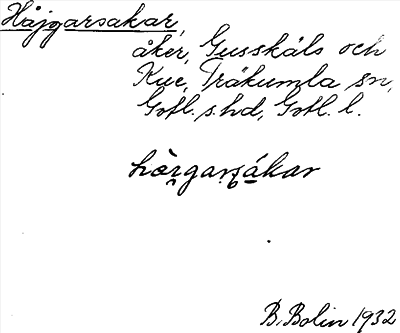 Häjgarsakar,
åker, Gusskäls och
Kue, Träkumla sn,
Gotl. s. hd, Gotl. l.
B. Bolin 1932